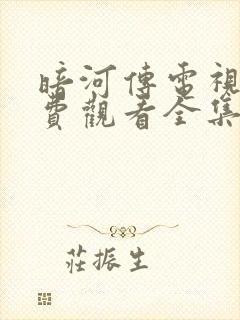 暗河傳電視
費觀看全集
莊振生